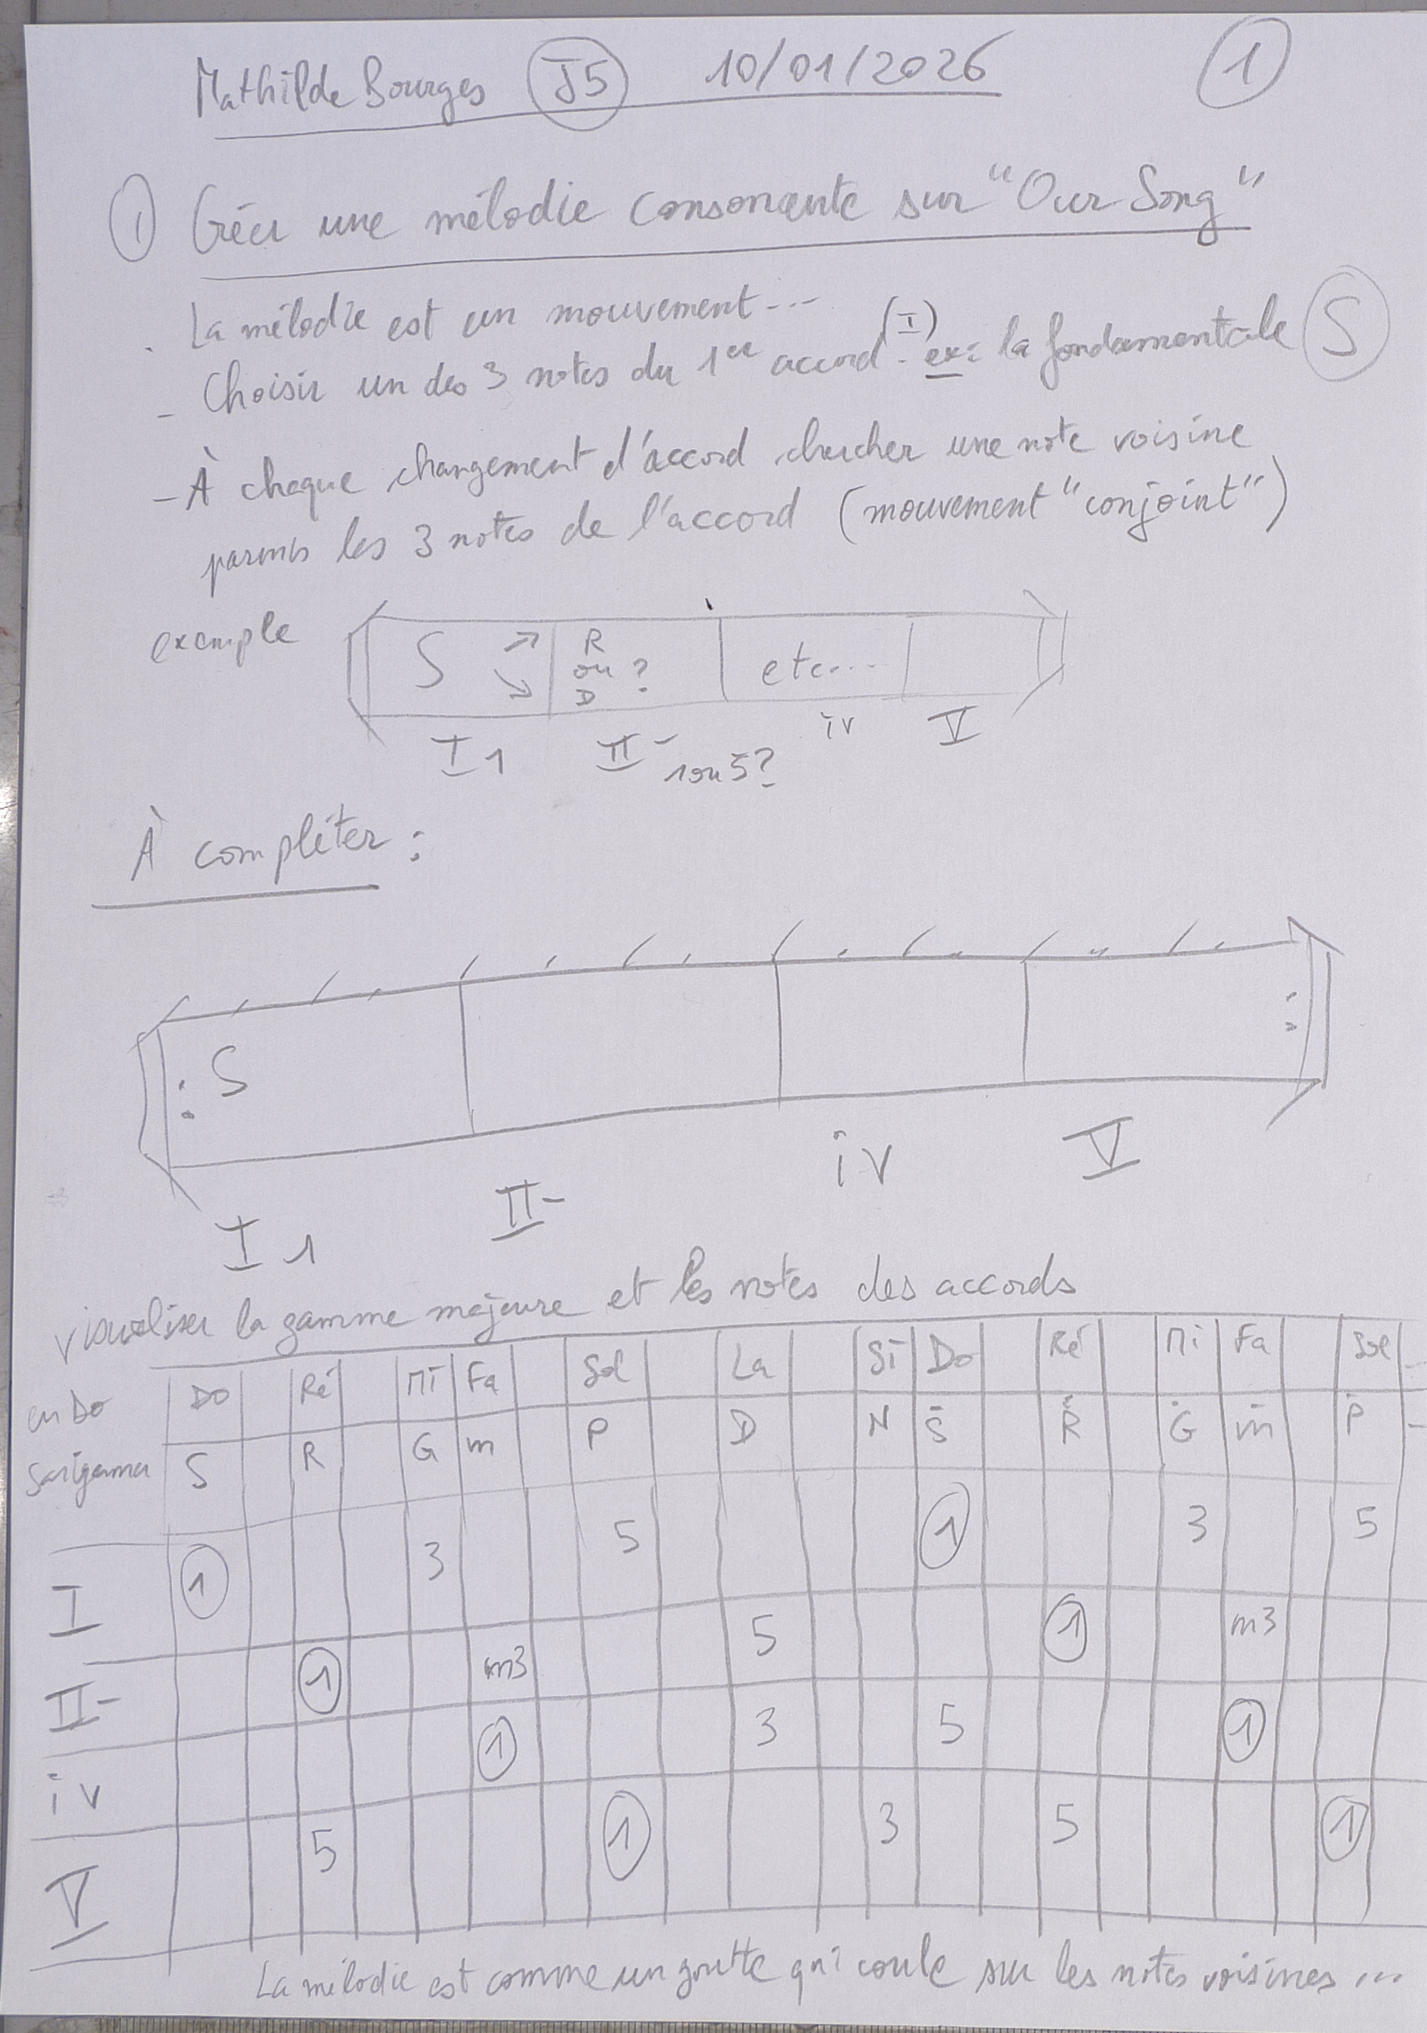 Mathilde Bourges J5 10/01/2026 1
1 Créer une mélodie consonante sur "Our Song"
. La mélodie est un mouvement...
- Choisir un des 3 notes du 1er accord (I) - ex: la fondamentale S
- À chaque changement d'accord chercher une note voisine
parmis les 3 notes de l'accord (mouvement "conjoint")
exemple S ↗ ↘ R ou D ? etc....
I 1 II- 1 ou 5? iv V
À compléter :
: S :
I 1 II- iv V
visualiser la gamme majeure et les notes des accords
en Do Do Ré Mi Fa Sol La Si Do Ré Mi Fa Sol
Sarigama S R G m P D N Ṡ Ṙ Ġ ṁ Ṗ
I 1 3 5 1 3 5
II- 1 m3 5 1 m3
iv 1 3 5 1
V 5 1 3 5 1
La mélodie est comme un goutte qui coule sur les notes voisines...